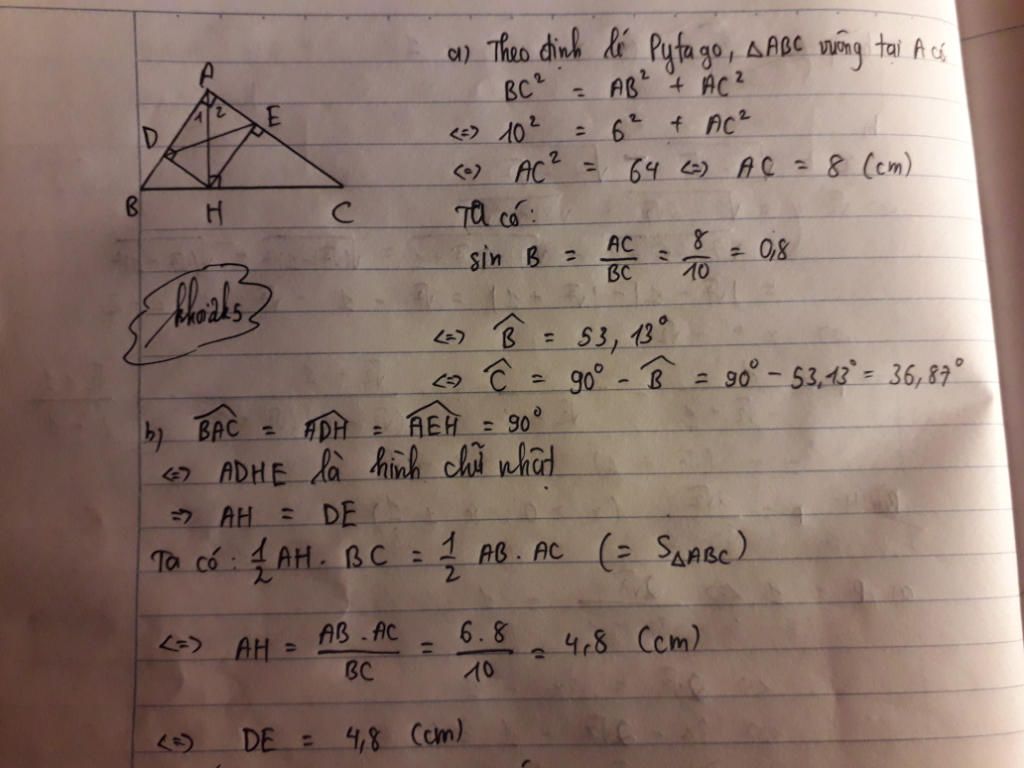 a) Theo định lí Pytago, △ABC vuông tại A có
BC² = AB² + AC²
<=> 10² = 6² + AC²
<=> AC² = 64 <=> AC = 8 (cm)
Ta có:
sin B = AC/BC = 8/10 = 0,8
<=> B̂ = 53,13°
<=> Ĉ = 90° - B̂ = 90° - 53,13° = 36,87°
A
1 2
D
E
B
H
C
khoi2k5
b) \widehat{BAC} = \widehat{ADH} = \widehat{AEH} = 90°
<=> ADHE là hình chữ nhật
=> AH = DE
Ta có: 1/2 AH . BC = 1/2 AB . AC (= S△ABC)
<=> AH = AB . AC/BC = 6 . 8/10 = 4,8 (cm)
<=> DE = 4,8 (cm)